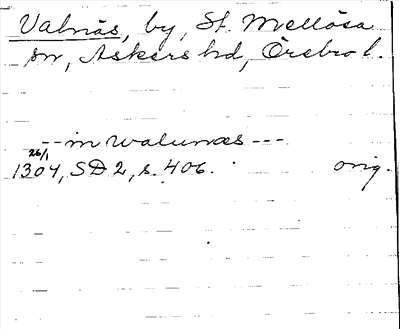 Valnäs, by, St. Mellösa
sn, Askers hd, Örebro l.
-- in walunæs ---
26/1
1304, SD 2, s. 406. orig.